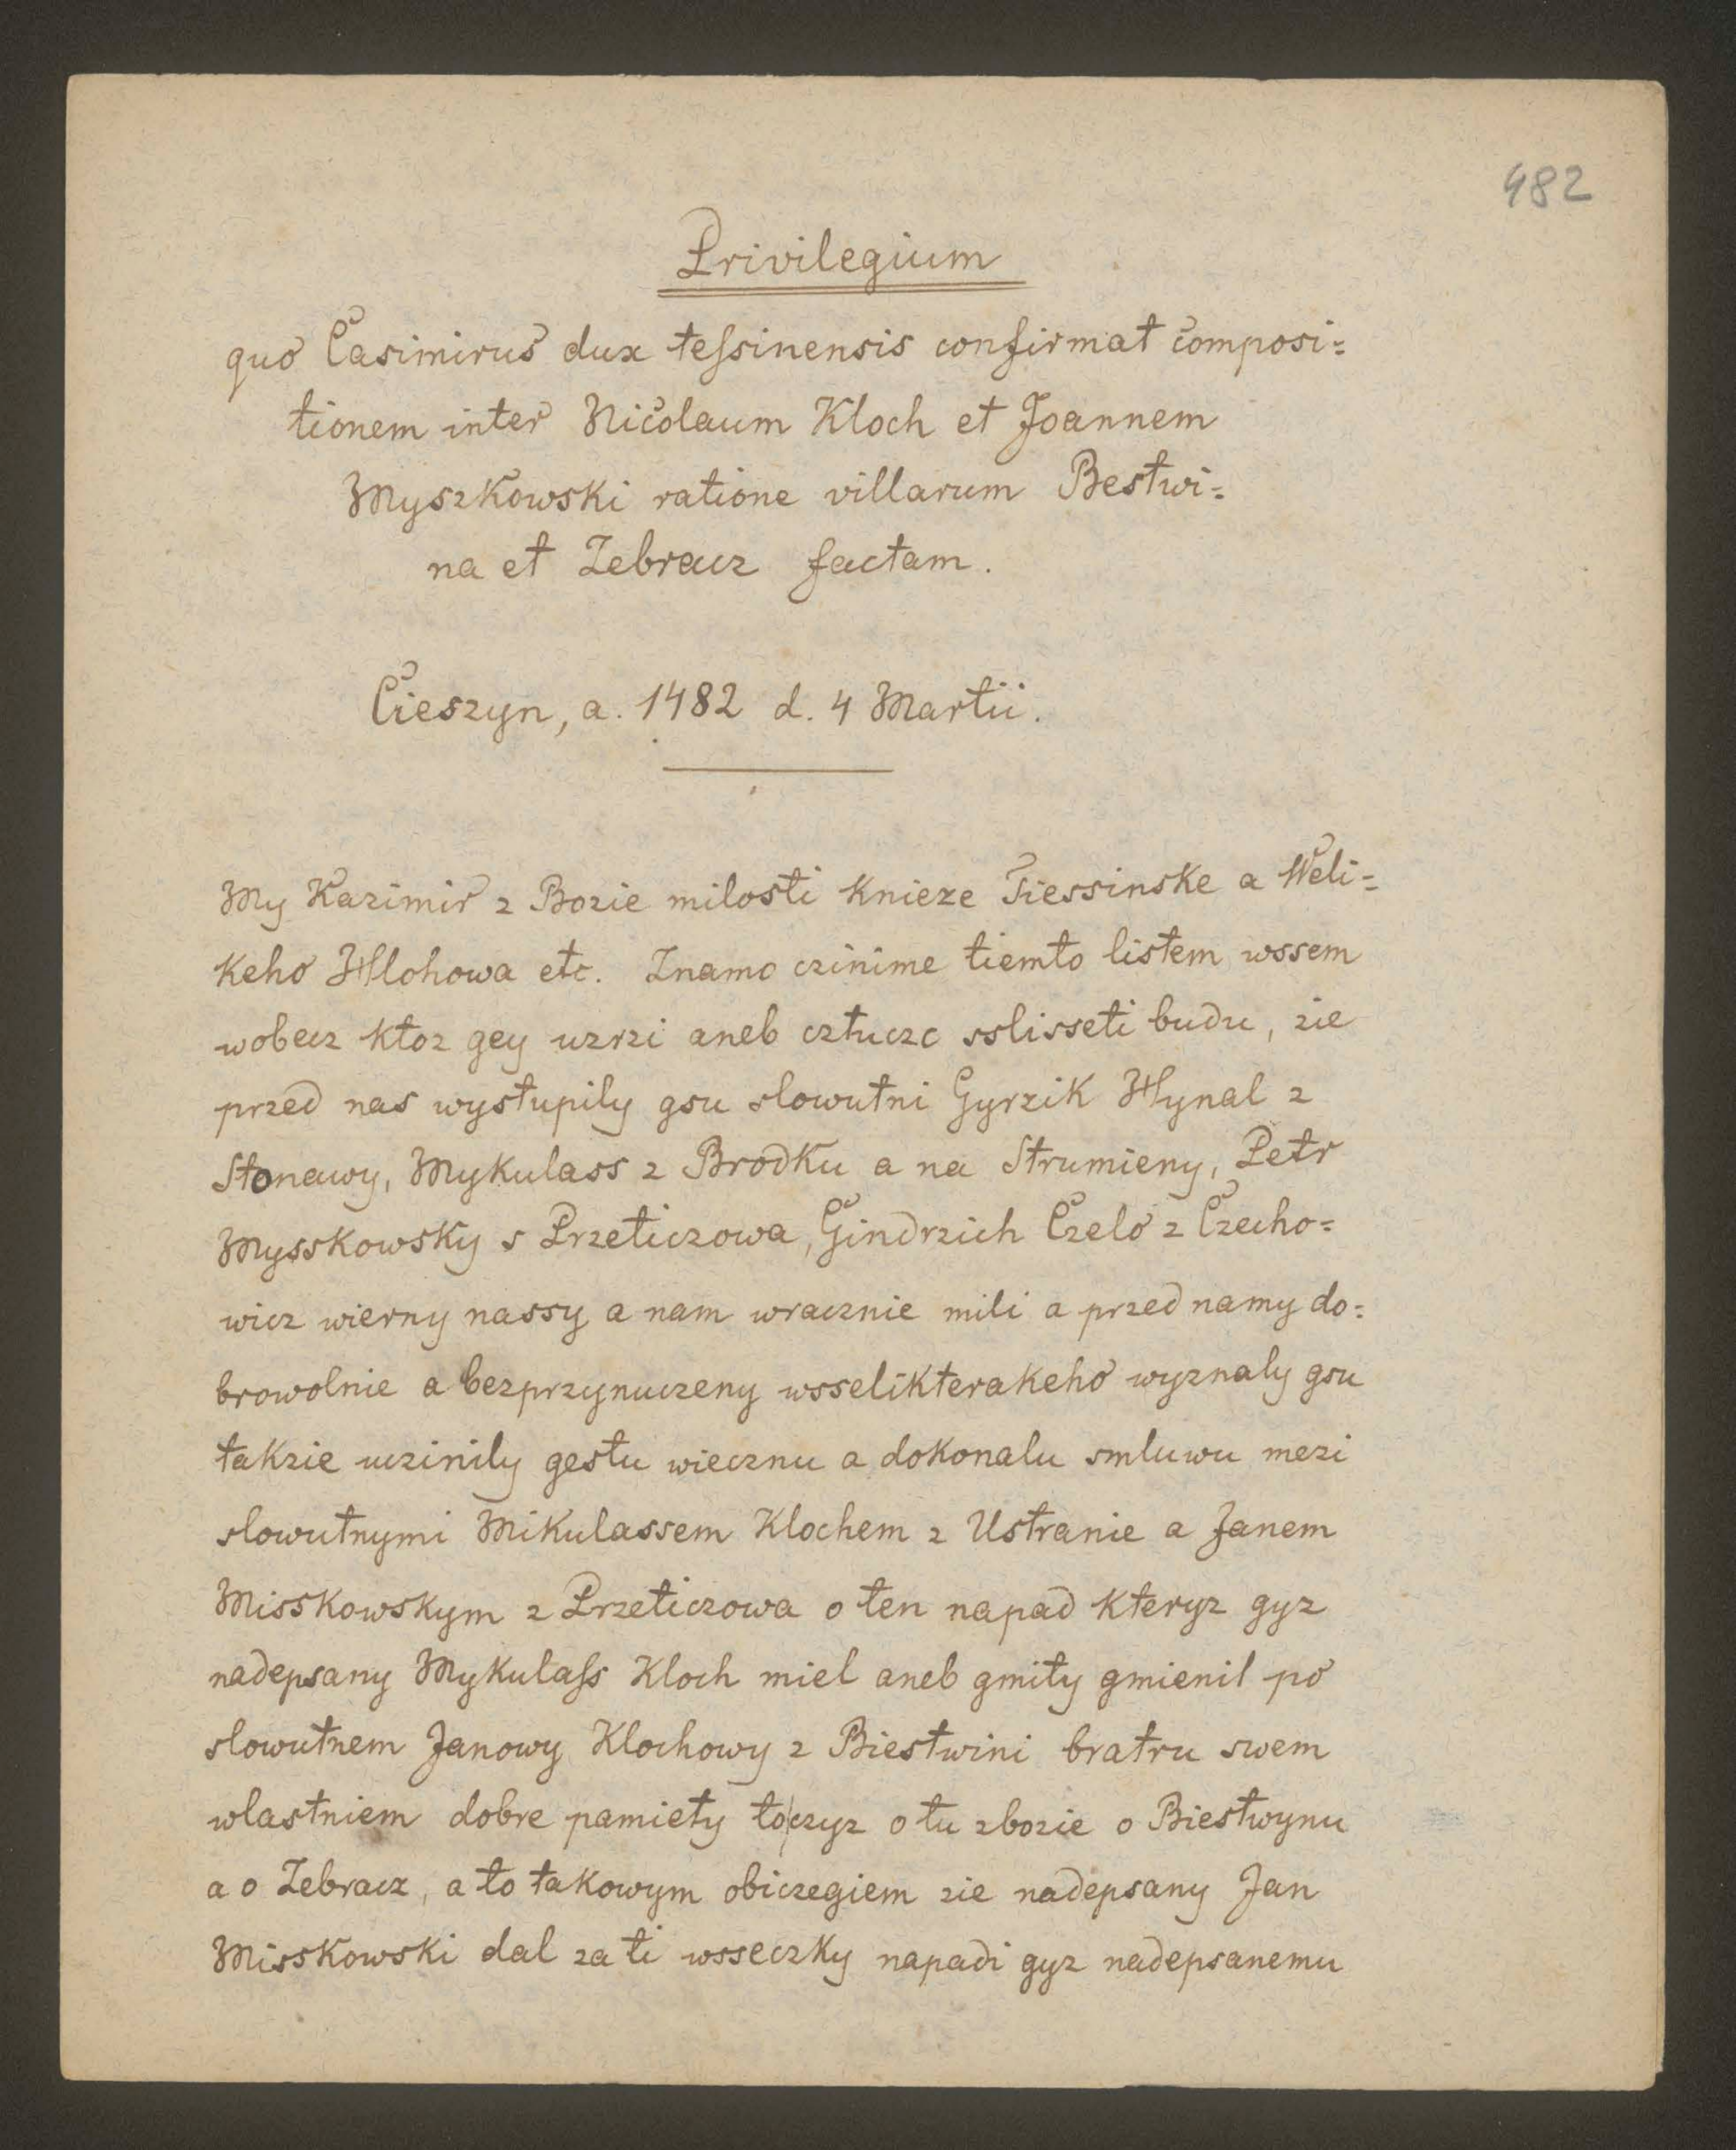 482
Privilegium
quo Casimirus dux teſsinensis confirmat composi=
tionem inter Nicolaum Kloch et Joannem
Myszkowski ratione villarum Bestwi=
na et Zebracz factam.
Cieszyn, a. 1482 d. 4 Martii.
My Kazimir z Bozie milosti knieze Tiessinske a Weli=
keho Hlohowa etc. Znamo czinime tiemto listem wssem
wobecz ktoz gey uzrzi aneb cztucze sslisseti budu, zie
przed nas wystupily gsu slowutni Gyrzik Hynal z
Stonawy, Mykulass z Brodku a na Strumieny, Petr
Mysskowsky s Przeticzowa, Gindrzich Czelo z Czecho=
wicz wierny nassy a nam wracznie mili a przed namy do=
browolnie a bezprzynuczeny wsselikterakeho wyznaly gsu
takzie uczinily gestu wiecznu a dokonalu smluwu mezi
slowutnymi Mikulassem Klochem z Ustranie a Janem
Misskowskym z Przeticzowa o ten napad kteryz gyz
nadepsany Mykulaſs Kloch miel aneb gmity gmienil po
slowutnem Janowy Klochowy z Biestwini bratru swem
wlastniem dobre pamiety toczyz o tu zbozie o Biestwynu
a o Zebracz, a to takowym obiczegiem zie nadepsany Jan
Misskowski dal za ti wsseczky napadi gyz nadepsanemu